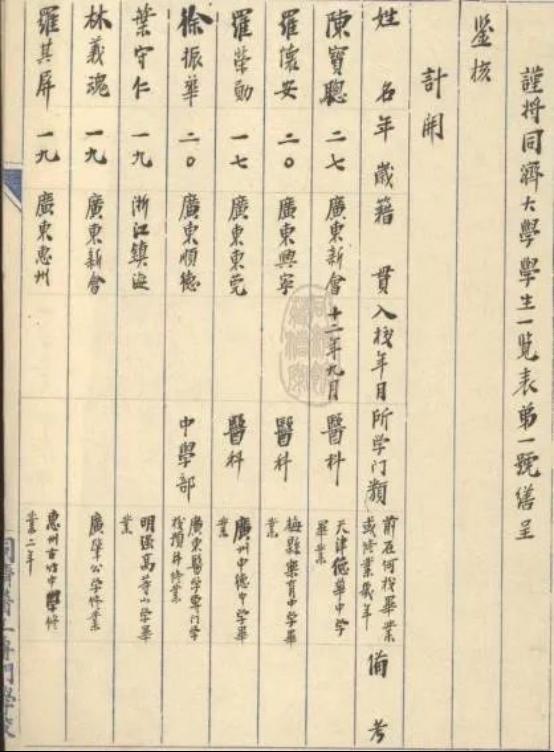 謹將同濟大學學生一览表第一號繕呈
鉴核
計開
姓名 年歲 籍貫 入校年月 所学门類 前在何校畢業或修業幾年 備考
陳寶聰 二七 廣東新會 十二年九月 醫科 天津德華中学畢業
羅懷安 二〇 廣東興寧 醫科 梅縣樂育中学畢業
羅榮勳 一七 廣東東莞 醫科 廣州中德中学畢業
徐振華 二〇 廣東順德 中學部 廣東醫学專门学校預科修業
葉守仁 一九 浙江鎮海 明强高等小学畢業
林義魂 一九 廣東新會 廣肇公学修業
羅其屏 一九 廣東惠州 惠州古竹中學修業二年